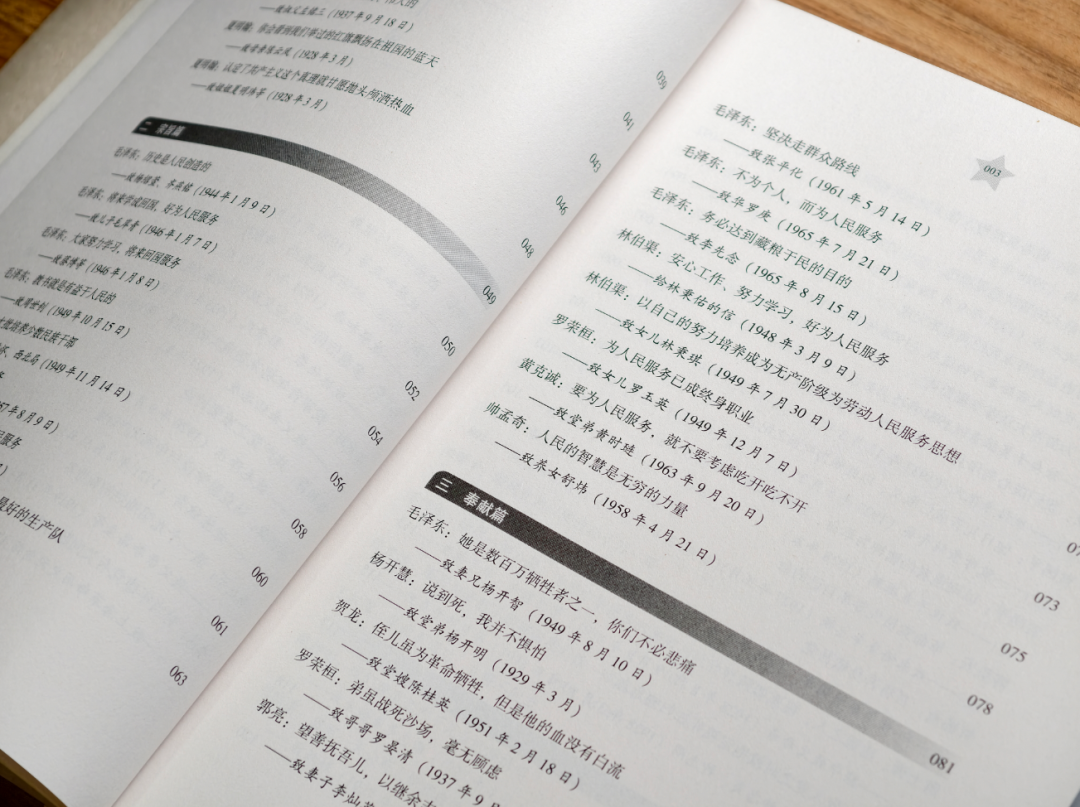 ——致叔父主稼三（1937年9月18日）
夏明翰：你会看到我们举过的红旗飘扬在祖国的蓝天
（1928年3月）
夏明翰：认定了共产主义这个真理就甘愿抛头颅洒热血
（1928年3月）
039
041
043
046
048
二 宗旨篇
049
毛泽东：历史是人民创造的
——致杨绍萱、齐燕铭（1944年1月9日）
050
毛泽东：将来学成回国，好为人民服务
——致儿子毛岸青（1946年1月7日）
052
毛泽东：大家努力学习，将来回国服务
——致蔡博等（1946年1月8日）
054
毛泽东：教书就是有益于人民的
——致周世钊（1949年10月15日）
056
大批培养少数民族干部
西北局（1949年11月14日）
058
8月9日）
060
民服务
061
最好的生产队
063
003
毛泽东：坚决走群众路线
——致张平化（1961年5月14日）
毛泽东：不为个人，而为人民服务
——致华罗庚（1965年7月21日）
毛泽东：务必达到藏粮于民的目的
——致李先念（1965年8月15日）
林伯渠：安心工作，努力学习，好为人民服务
——给林秉佑的信（1948年3月9日）
林伯渠：以自己的努力培养成为无产阶级为劳动人民服务思想
——致女儿林秉琪（1949年7月30日）
罗荣桓：为人民服务已成终身职业
——致女儿罗玉英（1949年12月7日）
黄克诚：要为人民服务，就不要考虑吃开吃不开
——致堂弟黄时琏（1963年9月20日）
073
帅孟奇：人民的智慧是无穷的力量
——致养女舒炜（1958年4月21日）
075
078
三 奉献篇
081
毛泽东：她是数百万牺牲者之一，你们不必悲痛
——致妻兄杨开智（1949年8月10日）
杨开慧：说到死，我并不惧怕
——致堂弟杨开明（1929年3月）
贺龙：侄儿虽为革命牺牲，但是他的血没有白流
——致堂嫂陈桂英（1951年2月18日）
罗荣桓：弟虽战死沙场，毫无顾虑
——致哥哥罗晏清（1937年9月
郭亮：望善抚吾儿，以继余志
——致妻子李灿英